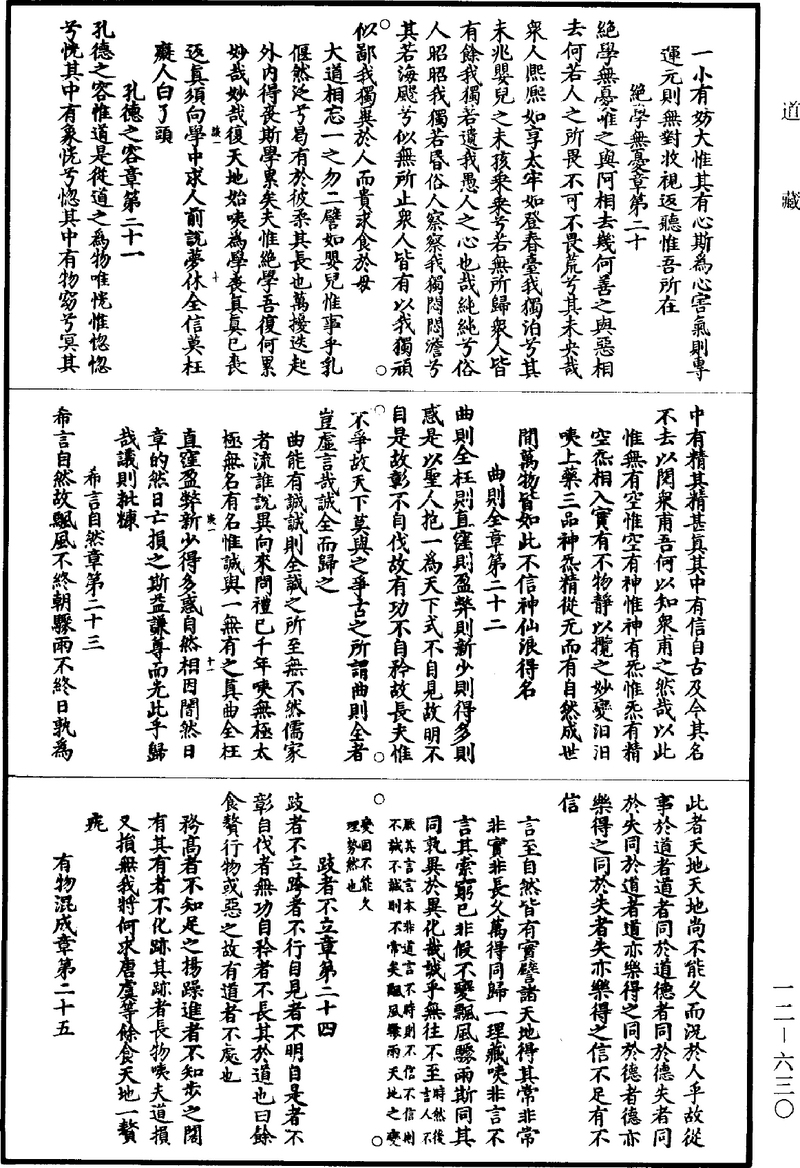 道藏
一小有妨大惟其有心斯為心害氣則專
運元則無對收視返聽惟吾所在
絕學無憂章第二十
絕學無憂唯之與阿相去幾何善之與惡相
去何若人之所畏不可不畏荒兮其未央哉
衆人熙熙如享太牢如登春臺我獨泊兮其
未兆嬰兒之未孩乘乘兮若無所歸衆人皆
有餘我獨若遺我愚人之心也哉純純兮俗
人昭昭我獨若昏俗人察察我獨悶悶澹兮
其若海飂兮似無所止衆人皆有以我獨頑
似鄙我獨異於人而貴求食於母
大道相忘一之勿二譬如嬰兒惟事乎乳
偃然泛兮曷有於彼柔其長也萬擾迭起
外內得喪斯學累矣夫惟絕學吾復何累
妙哉妙哉復天地始咦為學喪真真已喪
返真須向學中求人前說夢休全信莫枉
癡人白了頭
孔德之容章第二十一
孔德之容惟道是從道之為物唯恍惟惚惚
兮恍其中有象恍兮惚其中有物窈兮冥其
中有精其精甚真其中有信自古及今其名
不去以閱衆甫吾何以知衆甫之然哉以此
惟無有空惟空有神惟神有炁惟炁有精
空炁相入實有不物靜以攬之妙變汩汩
咦上藥三品神炁精從无而有自然成世
間萬物皆如此不信神仙浪得名
曲則全章第二十二
曲則全枉則直窪則盈弊則新少則得多則
惑是以聖人抱一為天下式不自見故明不
自是故彰不自伐故有功不自矜故長夫惟
不爭故天下莫與之爭古之所謂曲則全者
豈虛言哉誠全而歸之
曲能有誠誠則全誠之所至無不然儒家
者流誰說異向來問禮已千年咦無極太
極無名有名惟誠與一無有之真曲全枉
直窪盈弊新少得多惑自然相因闇然日
章的然日亡損之斯益謙尊而光此乎歸
哉議則紕㯶
希言自然章第二十三
希言自然故飄風不終朝驟雨不終日孰為
此者天地天地尚不能久而況於人乎故從
事於道者道者同於道德者同於德失者同
於失同於道者道亦樂得之同於德者德亦
樂得之同於失者失亦樂得之信不足有不
信
言至自然皆有實譬諸天地得其常非常
非實非長久萬得同歸一理藏咦非言不
言其索窮已非候不變飄風驟雨斯同其
同孰異於異化哉誠乎無往不至時然後言人不
厭其言言本非道言不時則不信不信則
不誠不誠則不常矣飄風驟雨天地之變
變固不能久
理勢然也
跂者不立章第二十四
跂者不立跨者不行自見者不明自是者不
彰自伐者無功自矜者不長其於道也曰餘
食贅行物或惡之故有道者不處也
務高者不知足之揚躁進者不知步之闊
有其有者不化跡其跡者長物咦夫道損
又損無我將何求唐虞等餘食天地一贅
疣
有物混成章第二十五
一二—六三〇